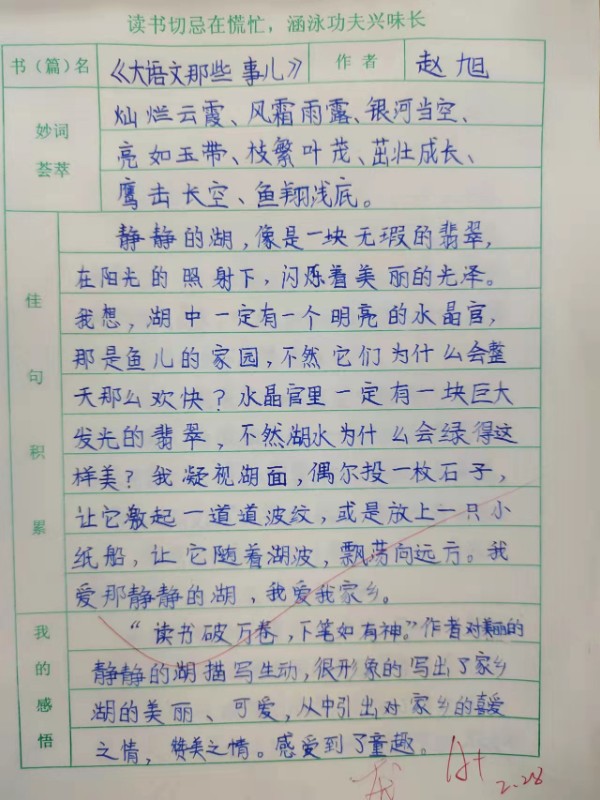 读书切忌在慌忙，涵泳功夫兴味长
书（篇）名 《大语文那些事儿》 作者 赵旭
妙词荟萃
灿烂云霞、风霜雨露、银河当空、
亮如玉带、枝繁叶茂、茁壮成长、
鹰击长空、鱼翔浅底。
佳句积累
静静的湖，像是一块无瑕的翡翠，
在阳光的照射下，闪烁着美丽的光泽。
我想，湖中一定有一个明亮的水晶宫，
那是鱼儿的家园，不然它们为什么会整
天那么欢快？水晶宫里一定有一块巨大
发光的翡翠，不然湖水为什么会绿得这
样美？我凝视湖面，偶尔投一枚石子，
让它激起一道道波纹，或是放上一只小
纸船，让它随着湖波，飘荡向远方。我
爱那静静的湖，我爱我家乡。
我的感悟
“读书破万卷，下笔如有神。”作者对美丽的
静静的湖描写生动，很形象的写出了家乡
湖的美丽、可爱，从中引出对家乡的喜爱
之情，赞美之情。感受到了童趣。
A+
2.28